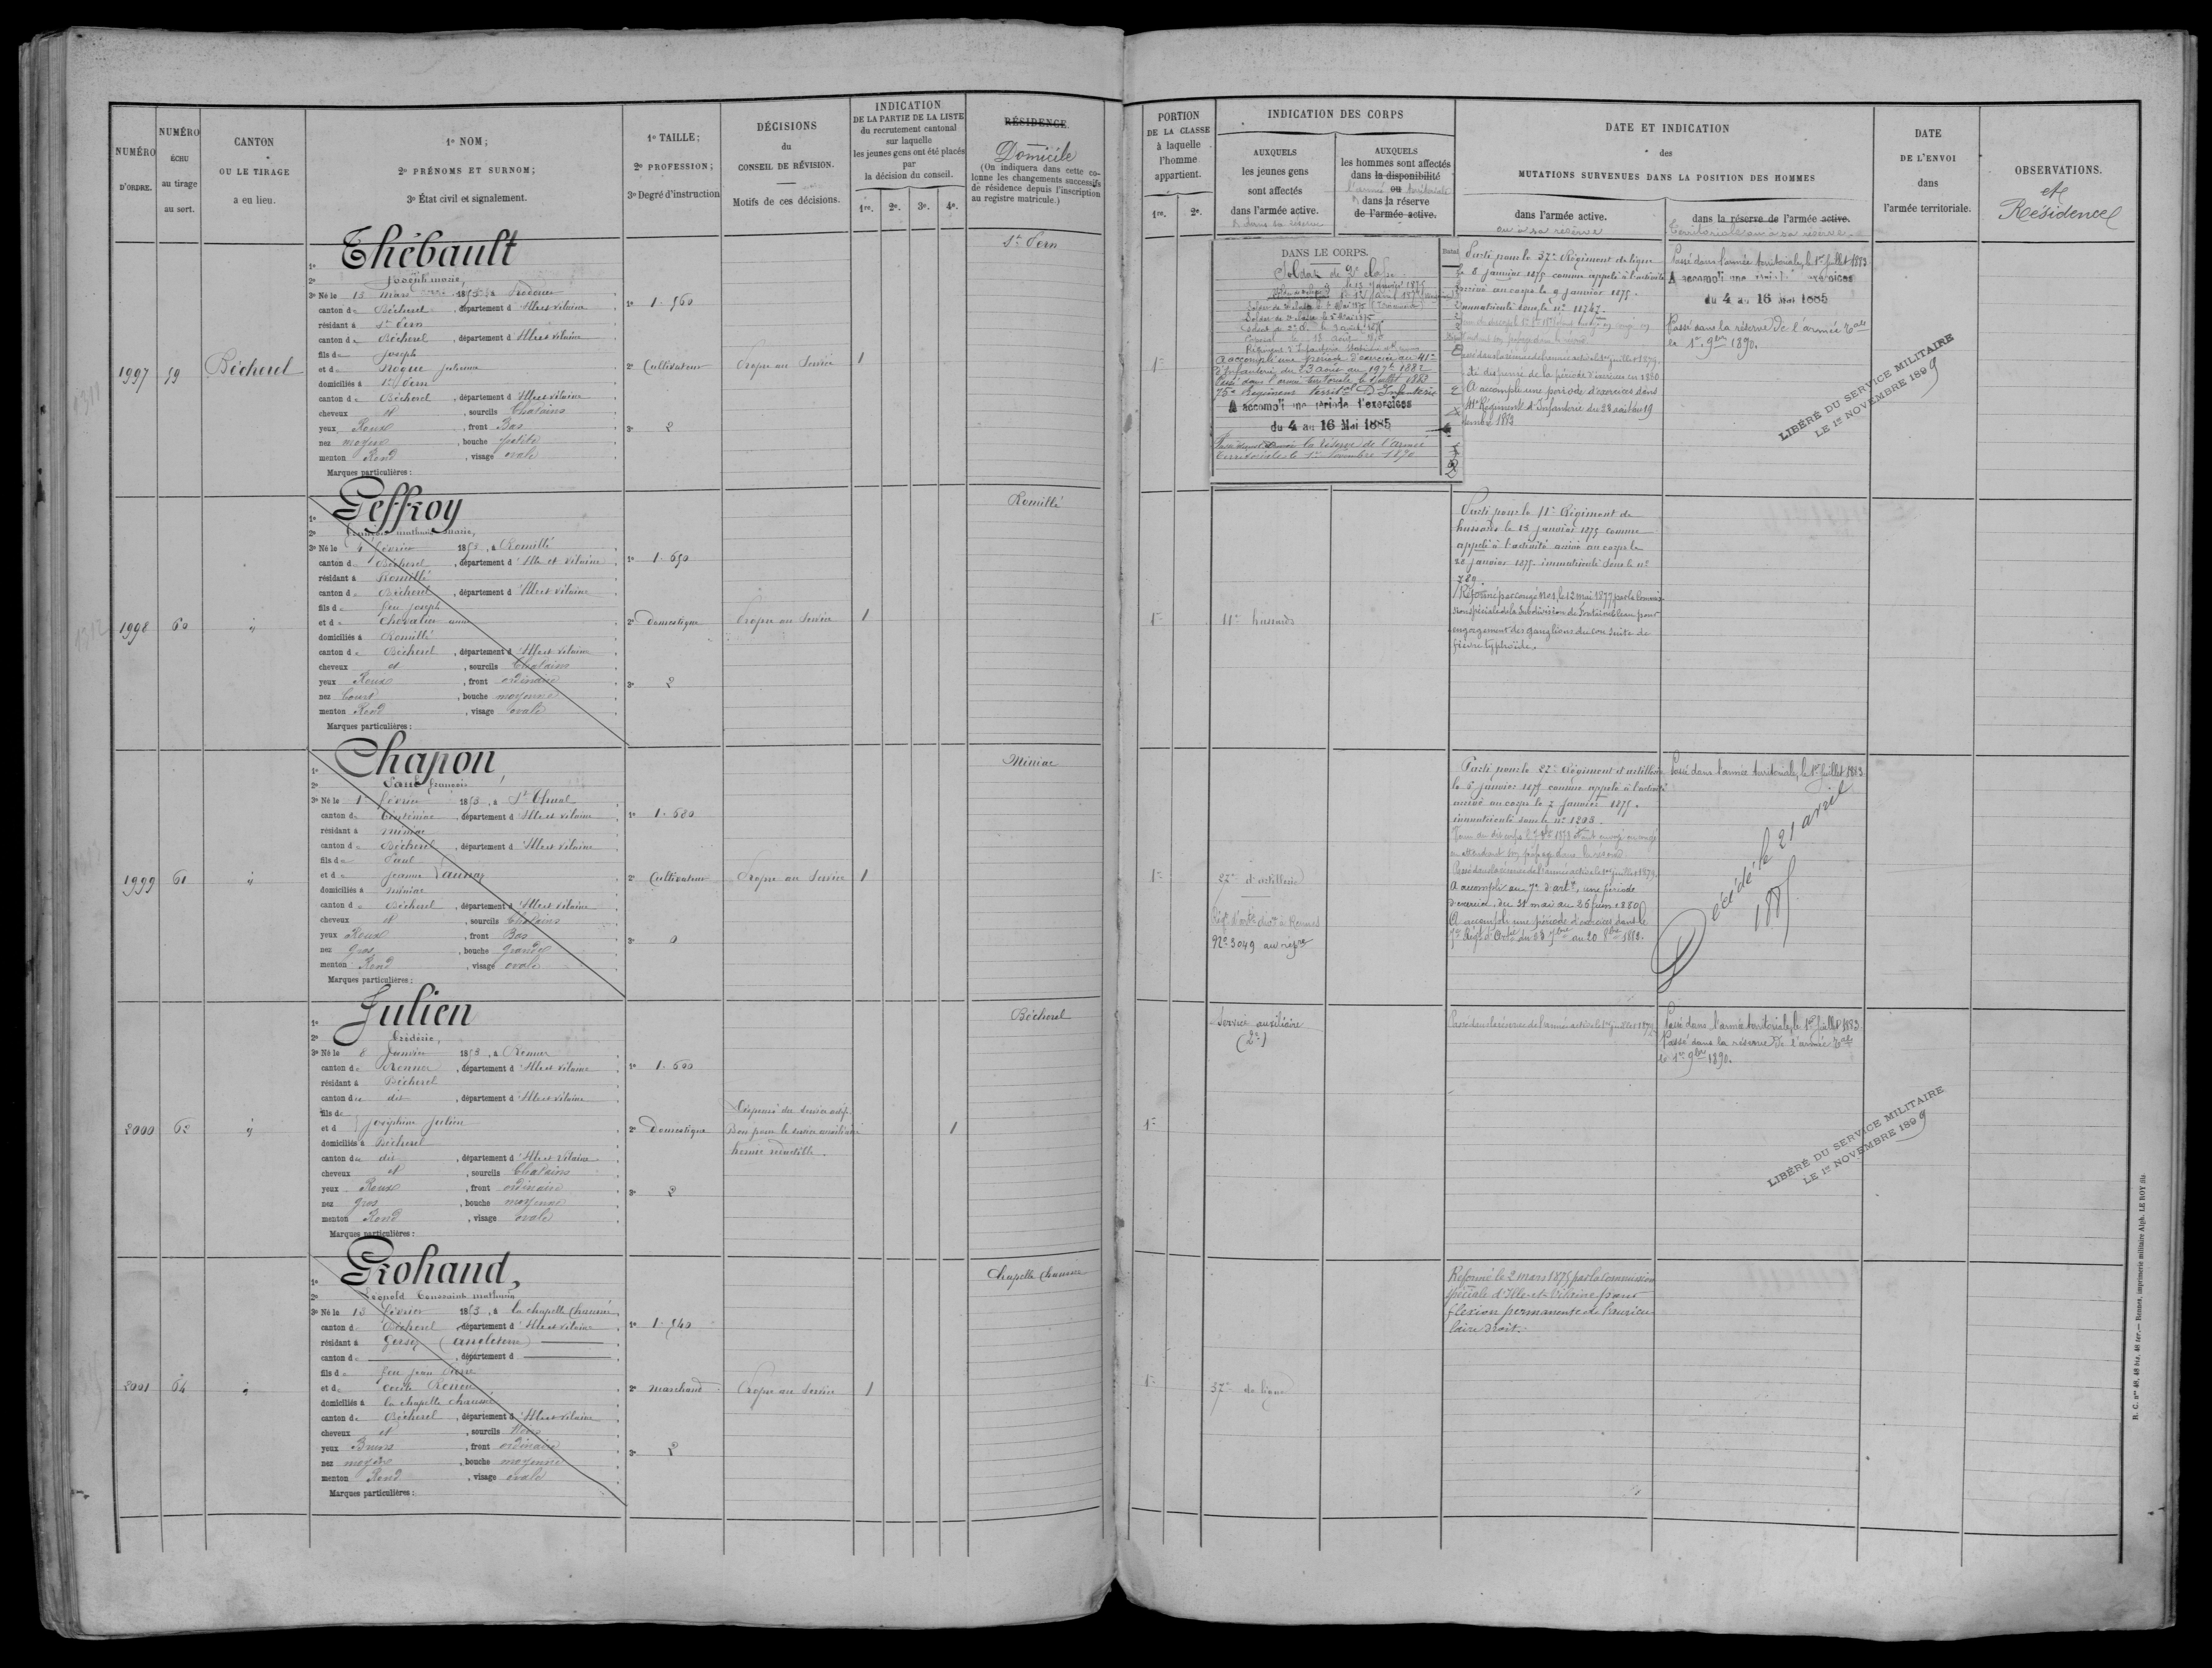 NUMÉRO
D'ORDRE.
NUMÉRO
ÉCHU
au tirage
au sort.
CANTON
OU LE TIRAGE
a eu lieu.
1º NOM;
2º PRÉNOMS ET SURNOM;
3º État civil et signalement.
1º TAILLE;
2º PROFESSION;
3º Degré d'instruction
DÉCISIONS
du
CONSEIL DE RÉVISION.
Motifs de ces décisions.
INDICATION
DE LA PARTIE DE LA LISTE
du recrutement cantonal
sur laquelle
les jeunes gens ont été placés
par
la décision du conseil.
1re. 2e. 3e. 4e.
RÉSIDENCE
Domicile
(On indiquera dans cette co-
lonne les changements successifs
de résidence depuis l'inscription
au registre matricule.)
PORTION
DE LA CLASSE
à laquelle
l'homme
appartient.
1re. 2e.
INDICATION DES CORPS
AUXQUELS
les jeunes gens
sont affectés
dans l'armée active.
AUXQUELS
les hommes sont affectés
dans la disponibilité
ou
l'armée territoriale
dans la réserve
de l'armée active.
DATE ET INDICATION
des
MUTATIONS SURVENUES DANS LA POSITION DES HOMMES
dans l'armée active.
ou à sa réserve
dans la réserve de l'armée active.
territoriale ou à sa réserve
DATE
DE L'ENVOI
dans
l'armée territoriale.
OBSERVATIONS.
et
Résidence
1997
59
Bécherel
1º Thébault
2º Joseph marie,
3º Né le 13 mars 1853
canton de Bécherel, département d'Ille et vilaine
résidant à St Pern
canton de Bécherel, département d'Ille et vilaine
fils de Joseph
et de Noque julienne
domiciliés à St Pern
canton de Bécherel, département d'Ille et vilaine
cheveux et, sourcils Chatains
yeux Roux, front Bas
nez moyen, bouche petite
menton Rond, visage ovale
Marques particulières:
1º 1.560
2º Cultivateur
3º 2
Propre au Service
1
St Pern
1re
DANS LE CORPS.
Soldat de 2e classe
A accompli une période d'exercice au 41e
d'Infanterie du 23 août au 19 7bre 1882
Passé dans l'armée territoriale le 1er juillet 1883
75e Régiment territal D'Infanterie
A accompli une période d'exercices
du 4 au 16 Mai 1885
Passé dans la réserve de l'armée
territoriale le 1er Novembre 1890
Parti pour le 37e Régiment de ligne
le 8 janvier 1875 comme appelé à l'activité
arrivé au corps le 9 janvier 1875.
immatriculé sous le nº 11747.
Passé dans la réserve de l'armée active le 1er juillet 1879.
été dispensé de la période d'exercices en 1880
A accompli une période d'exercices dans
41e Régiment d'Infanterie du 23 août au 19
Passé dans l'armée territoriale, le 1er juillet 1883
A accompli une période d'exercices
du 4 au 16 Mai 1885
Passé dans la réserve de l'armée Tale
le 1er 9bre 1890.
LIBÉRÉ DU SERVICE MILITAIRE
LE 1er NOVEMBRE 1899
1998
60
"
1º Geffroy
2º François mathurin marie,
3º Né le 4 février 1853, à Romillé
canton de Bécherel, département d'Ille et vilaine
résidant à Romillé
canton de Bécherel, département d'Ille et vilaine
fils de feu joseph
et de Chevalier anne
domiciliés à Romillé
canton de Bécherel, département d'Ille et vilaine
cheveux et, sourcils Chatains
yeux Roux, front ordinaire
nez Court, bouche moyenne
menton Rond, visage ovale
Marques particulières:
1º 1.650
2º Domestique
3º 2
Propre au Service
1
Romillé
1re
11e hussards
Parti pour le 11e Régiment de
hussards le 13 janvier 1875 comme
appelé à l'activité arrivé au corps le
22 janvier 1875. immatriculé sous le nº
789.
Réformé par congé Nº1, le 12 mai 1877 par la Commis-
sion spéciale de la Subdivision de Fontainebleau pour
engorgement des ganglions du cou suite de
fièvre typhoïde.
1999
61
"
1º Chapon
2º Paul françois
3º Né le 1 février 1853, à St Thual
canton de Tinténiac, département d'Ille et vilaine
résidant à Miniac
canton de Bécherel, département d'Ille et vilaine
fils de Paul
et de jeanne Launay
domiciliés à Miniac
canton de Bécherel, département d'Ille et vilaine
cheveux et, sourcils Chatains
yeux Roux, front Bas
nez Gros, bouche grande
menton Rond, visage ovale
Marques particulières:
1º 1.680
2º Cultivateur
3º 0
Propre au Service
1
Miniac
1re
27e d'artillerie
Nº 3049 au rég
Parti pour le 27e Régiment d'artillerie
le 5 janvier 1875 comme appelé à l'activité
arrivé au corps le 7 janvier 1875.
immatriculé sous le nº 1203.
Passé dans la réserve de l'armée active le 1er juillet 1879.
A accompli au 7e d'artie, une période
d'exercices, du 31 mai au 26 juin 1880
A accompli une période d'exercices dans le
7e Régt d'Artie du 23 7bre au 20 8bre 1882.
Passé dans l'armée territoriale, le 1er juillet 1883
Décédé le 21 avril
2000
62
"
1º Julien
2º frédéric,
3º Né le 8 Janvier 1853, à Rennes
canton de Rennes, département d'Ille et vilaine
résidant à Bécherel
canton de dit, département d'Ille et vilaine
fils de
et d joséphine julien
domiciliés à Bécherel
canton de dit, département d'Ille et vilaine
cheveux et, sourcils Chatains
yeux Roux, front ordinaire
nez gros, bouche moyenne
menton Rond, visage ovale
Marques particulières:
1º 1.600
2º Domestique
3º 2
Dispensé du Service actif.
Bon pour le service auxiliaire
hernie réductible.
1
Bécherel
1re
Service auxiliaire
(2e)
Passé dans la réserve de l'armée active le 1er juillet 1879
Passé dans l'armée territoriale, le 1er juillet 1883
Passé dans la réserve de l'armée Tale
le 1er 9bre 1890.
LIBÉRÉ DU SERVICE MILITAIRE
LE 1er NOVEMBRE 1899
2001
64
"
1º Grohand,
2º Léopold Toussaint mathurin
3º Né le 13 février 1853, à la chapelle Chaussée
canton de Bécherel département d'Ille et vilaine
résidant à Gersey (angleterre)
canton de, département d
fils de feu jean Pierre
et de
domiciliés à la chapelle chaussée
canton de Bécherel, département d'Ille et vilaine
cheveux et, sourcils Noirs
yeux Bruns, front ordinaire
nez moyen, bouche moyenne
menton Rond, visage ovale
Marques particulières:
1º 1.540
2º marchand
3º 2
Propre au Service
1
Chapelle Chaussée
1re
37e de ligne
Réformé le 2 mars 1875 par la commission
spéciale d'Ille-et-Vilaine pour
flexion permanente de l'auricu-
laire droit.
R. C. nos 48, 48 bis, 48 ter.— Rennes, imprimerie militaire Alph. LE ROY fils